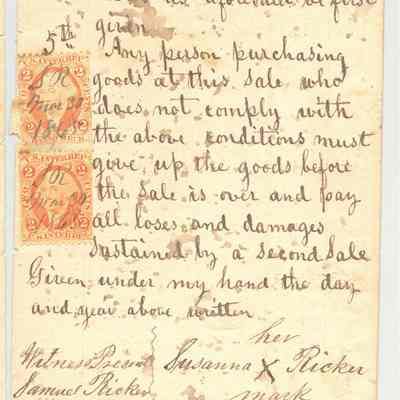 as aforesaid be first
given
5th Any person purchasing
goods at this Sale who
does not comply with
the above conditions must
give up the goods before
the Sale is over and pay
all loses and damages
Sustained by a Second Sale
Given under my hand the day
and year above written
her
Witness Present Susanna X Ricker
Samuel Ricker mark
2 U.S. INTER. REV. 2
S R
Mar 30
186
2 U.S. INTER. REV. 2
S R
Mar 30